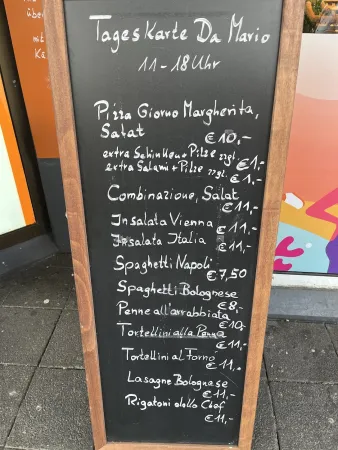 üb
mit
Ka
Tageskarte Da Mario
11-18 Uhr
Pizza Giorno Margherita,
Salat € 10,-
extra Schinken + Pilze zzgl. € 1,-
extra Salami + Pilze zzgl. € 1,-
Combinazione, Salat
€ 11,-
Insalata Vienna € 11,-
Insalata Italia € 11,-
Spaghetti Napoli
€ 7,50
Spaghetti Bolognese
€ 8,-
Penne all'arrabbiata
€ 10,-
Tortellini alla Panna
€ 11,-
Tortellini al Forno
€ 11,-
Lasagne Bolognese
€ 11,-
Rigatoni dello Chef
€ 11,-